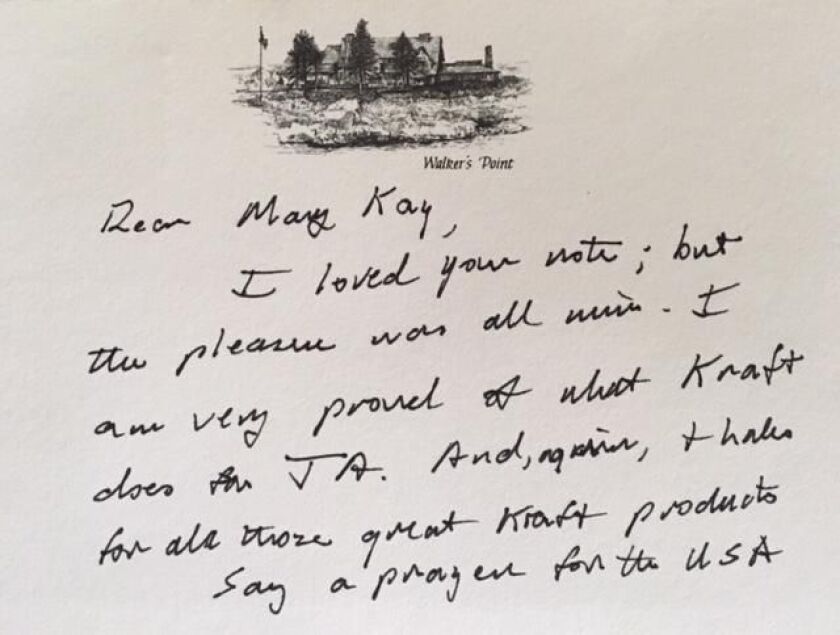 Walker's Point
Dear Mary Kay,
I loved your note; but
the pleasure was all mine. I
am very proud of what Kraft
does for JA. And, again, thanks
for all those great Kraft products
Say a prayer for the USA